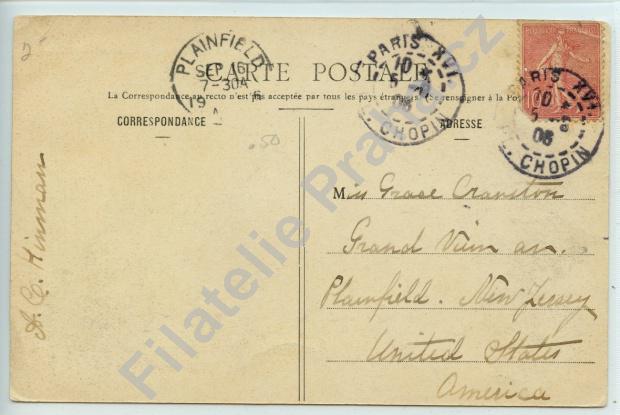 2-
PLAINFIELD
SEP 16
7-30A
19 6
CARTE POSTALE
PARIS XVI.
10
5
06
CHOPIN
PARIS XVI.
10
5
06
CHOPIN
La Correspondance au recto n'est pas acceptée par tous les pays étrangers. (Se renseigner à la Po
CORRESPONDANCE
ADRESSE
.50
A. C. Hinman
Miss Grace Cranston
Grand View av.
Plainfield. New Jersey
United States
America
Filatelie Praha.cz